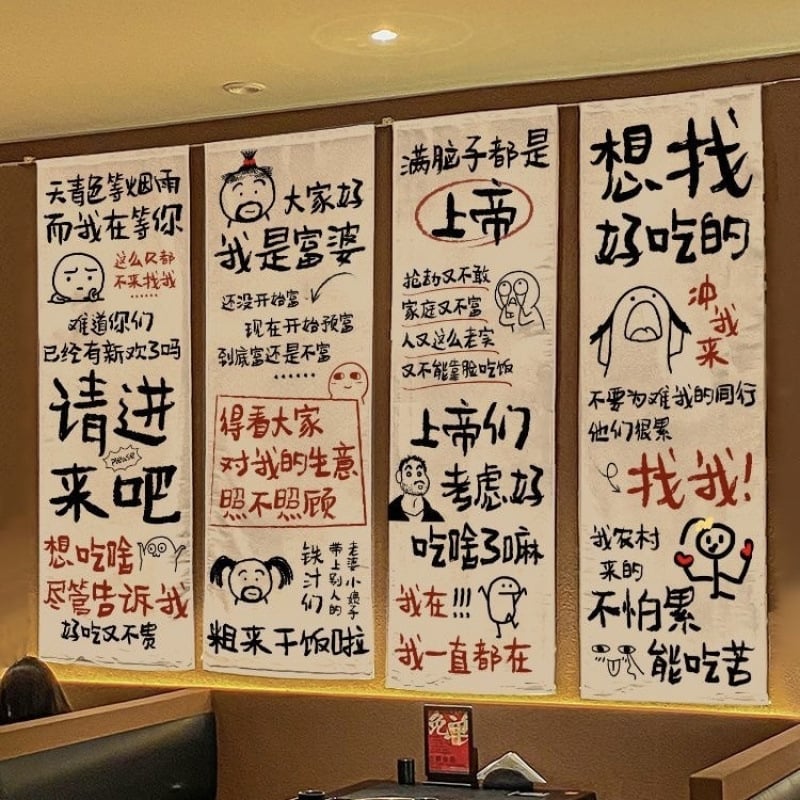 天青色等烟雨
而我在等你
这么久都
不来找我
......
难道你们
已经有新欢了吗
请进
please
来吧
想吃啥
尽管告诉我
好吃又不贵
大家好
我是富婆
还没开始富
现在开始预富
到底富还是不富
......
得看大家
对我的生意
照不照顾
铁汁们
带上别人的
老婆小娘子
粗来干饭啦
满脑子都是
上帝
抢劫又不敢
家庭又不富
人又这么老实
又不能靠脸吃饭
上帝们
考虑好
吃啥了嘛
我在!!!
我一直都在
想找
好吃的
冲我来
不要为难我的同行
他们很累
找我!
我农村
来的
不怕累
能吃苦
免单